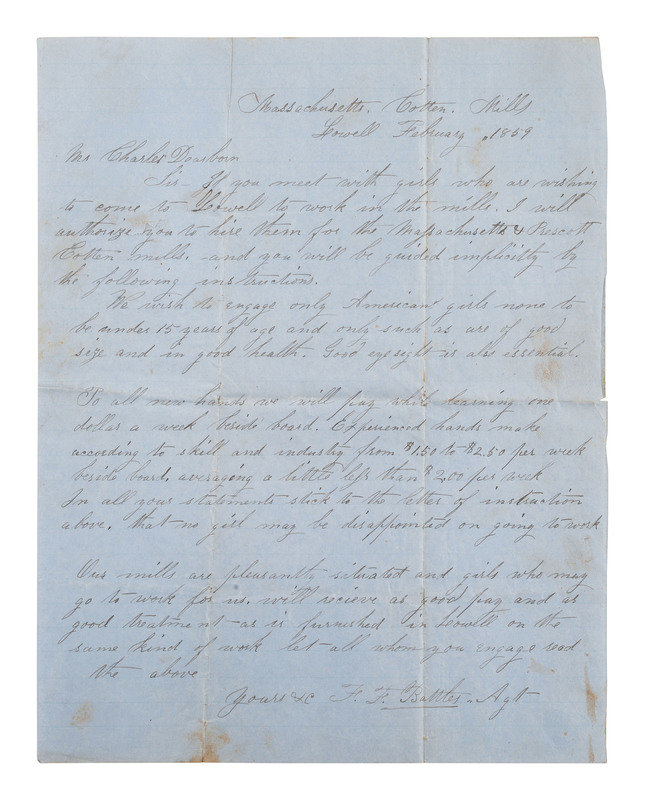 Massachusetts. Cotten. Mills
Lowell February ,1859
Mr Charles Dearborn
Sir- If you meet with girls who are wishing
to come to Lowell to work in the mills. I will
authorize you to hire them for the Massachusetts & Prescott
Cotten mills. -and you will be guided implicitly by
the following instructions.
We wish to engage only American girls none to
be under 15 years of age and only such as are of good
size and in good health. Good eyesight is also essential.
To all new hands we will pay while learning one
dollar a week beside board. Experienced hands make
according to skill and industry from $1.50 to $2.50 per week
beside board, averaging a little less than $2,00 per week
In all your statements stick to the letter of instruction
above, that no girl may be disappointed on going to work
Our mills are pleasantly situated and girls who may
go to work for us. will recieve as good pay and as
good treatment -as is furnished in Lowell on the
same kind of work let all whom you engage read
the above
Yours &c F. F. Battles, Agt